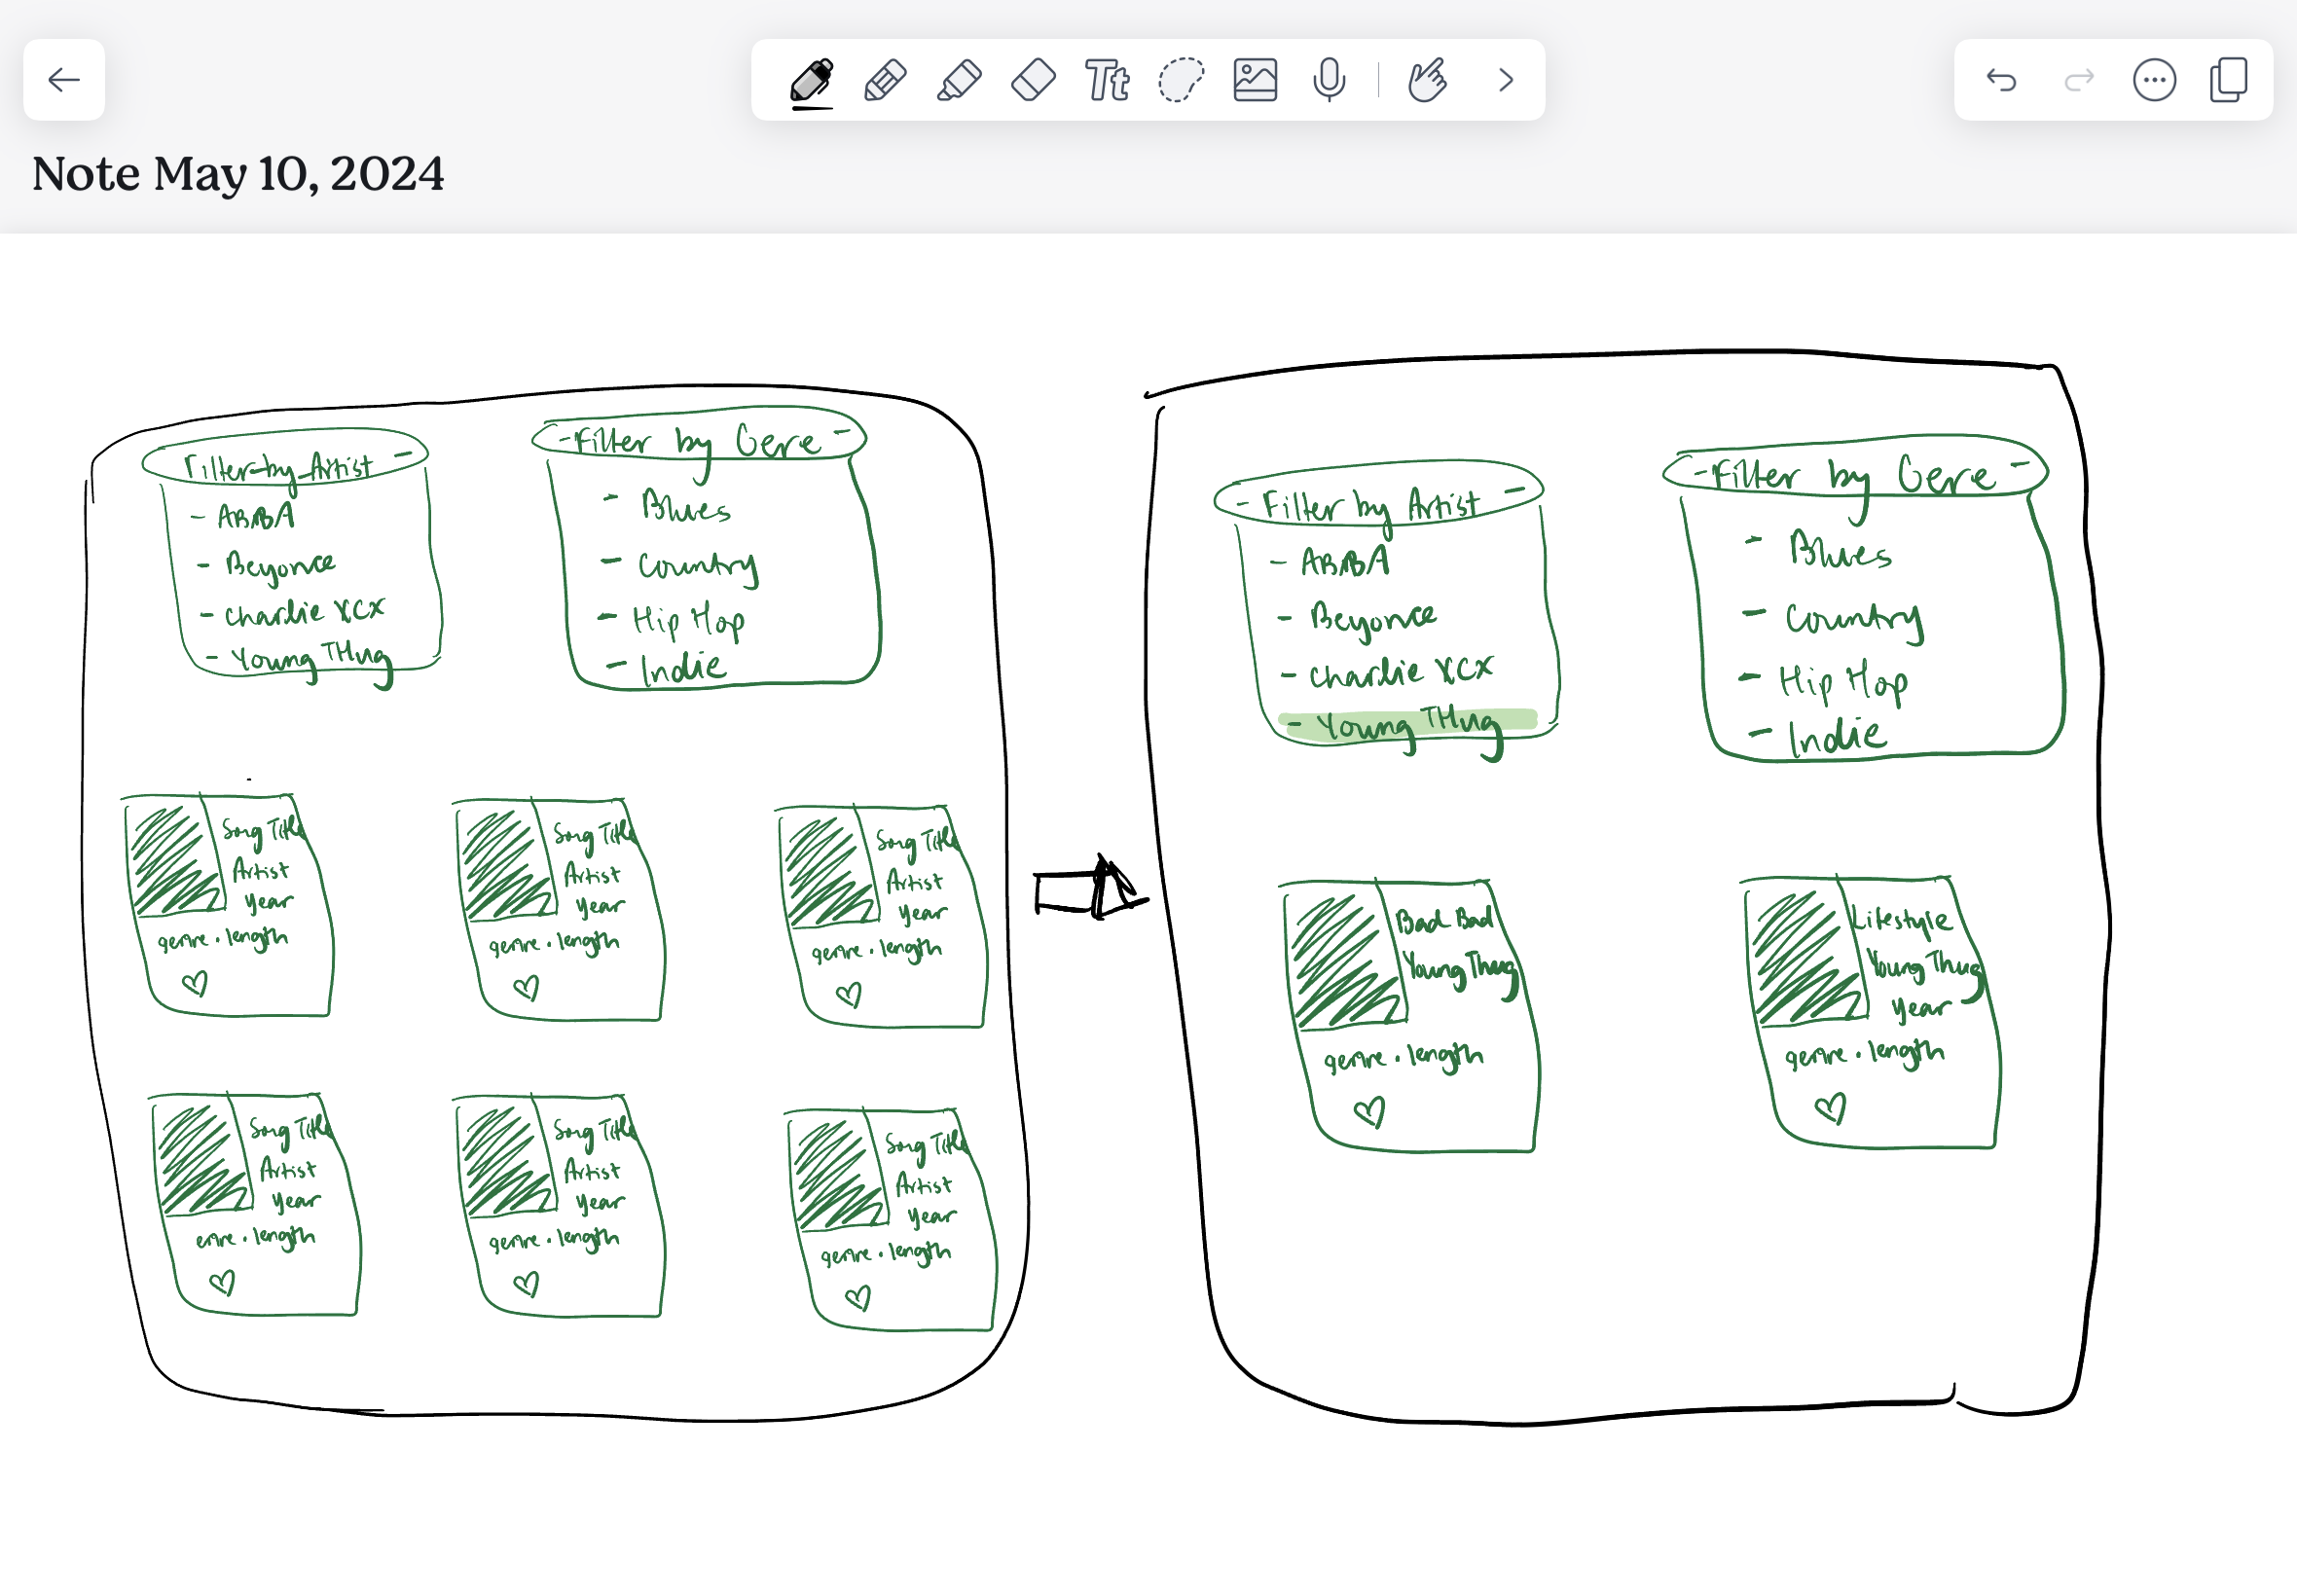 Note May 10, 2024
Filter by Artist -
- ABBA
- Beyonce
- Charlie XCX
- Young THug
- Filter by Gere -
- Blues
- Country
- Hip Hop
- Indie
Song Title
Artist
Year
genre . length
Song Title
Artist
Year
genre . length
Song Title
Artist
Year
genre . length
Song Title
Artist
Year
enre . length
Song Title
Artist
Year
genre . length
Song Title
Artist
Year
genre . length
- Filter by Artist -
- ABBA
- Beyonce
- Charlie XCX
- Young THug
- Filter by Gere -
- Blues
- Country
- Hip Hop
- Indie
Bad Bad
Young Thug
genre . length
Lifestyle
Young Thug
Year
genre . length
Tt